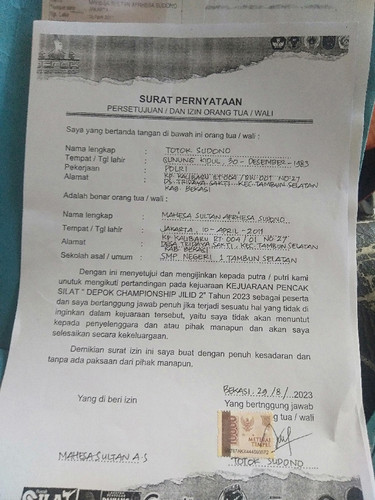 SURAT PERNYATAAN
PERSETUJUAN / DAN IZIN ORANG TUA / WALI
Saya yang bertanda tangan di bawah ini orang tua / wali :
Nama lengkap : TOTOK SUDONO
Tempat / Tgl lahir : GUNUNG KIDUL 30 - DESEMBER - 1983
Pekerjaan : POLRI
Alamat : KP. KALIBARU RT 004 / 011 NO 27
DS. TRIDAYA SAKTI KEC. TAMBUN SELATAN
KAB. BEKASI
Adalah benar orang tua / wali :
Nama lengkap : MAHESA SULTAN SUDONO
Tempat / Tgl lahir : JAKARTA, 10 - APRIL - 2011
Alamat : KP KALIBARU RT 004 / 011 NO 27
DESA TRIDAYA SAKTI KEC. TAMBUN SELATAN
KAB BEKASI
Sekolah asal / umum : SMP NEGERI 1 TAMBUN SELATAN
Dengan ini menyetujui dan mengijinkan kepada putra / putri kami
untuk mengikuti pertandingan pada kejuaraan KEJUARAAN PENCAK
SILAT " DEPOK CHAMPIONSHIP JILID 2" Tahun 2023 sebagai peserta
dan saya bertanggung jawab penuh jika terjadi sesuatu hal yang tidak di
inginkan dalam kejuaraan tersebut, yaitu saya tidak akan menuntut
kepada penyelenggara dan atau pihak manapun dan akan saya
selesaikan secara kekeluargaan.
Demikian surat izin ini saya buat dengan penuh kesadaran dan
tanpa ada paksaan dari pihak manapun.
BEKASI 29 / 8 / 2023
Yang di beri izin
Yang bertnggung jawab
g tua / wali
10000
METERAI
TEMPEL
MAHESA SULTAN A.S
TOTOK SUDONO
SILAT